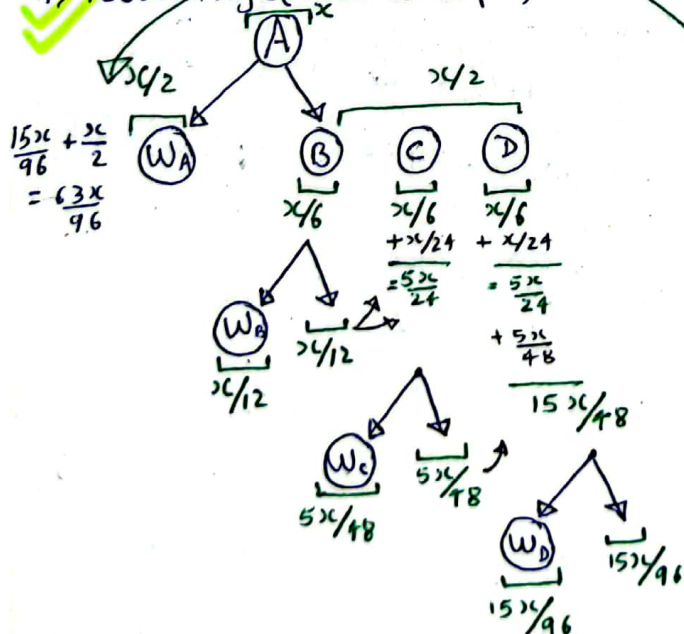 x
A
x/2
x/2
15x/96 + x/2
= 63x/96
W_A
B
C
D
x/6
x/6
x/6
+x/24
+ x/24
= 5x/24
= 5x/24
+ 5x/48
W_B
x/12
x/12
15x/48
W_C
5x/48
5x/48
W_D
15x/96
15x/96